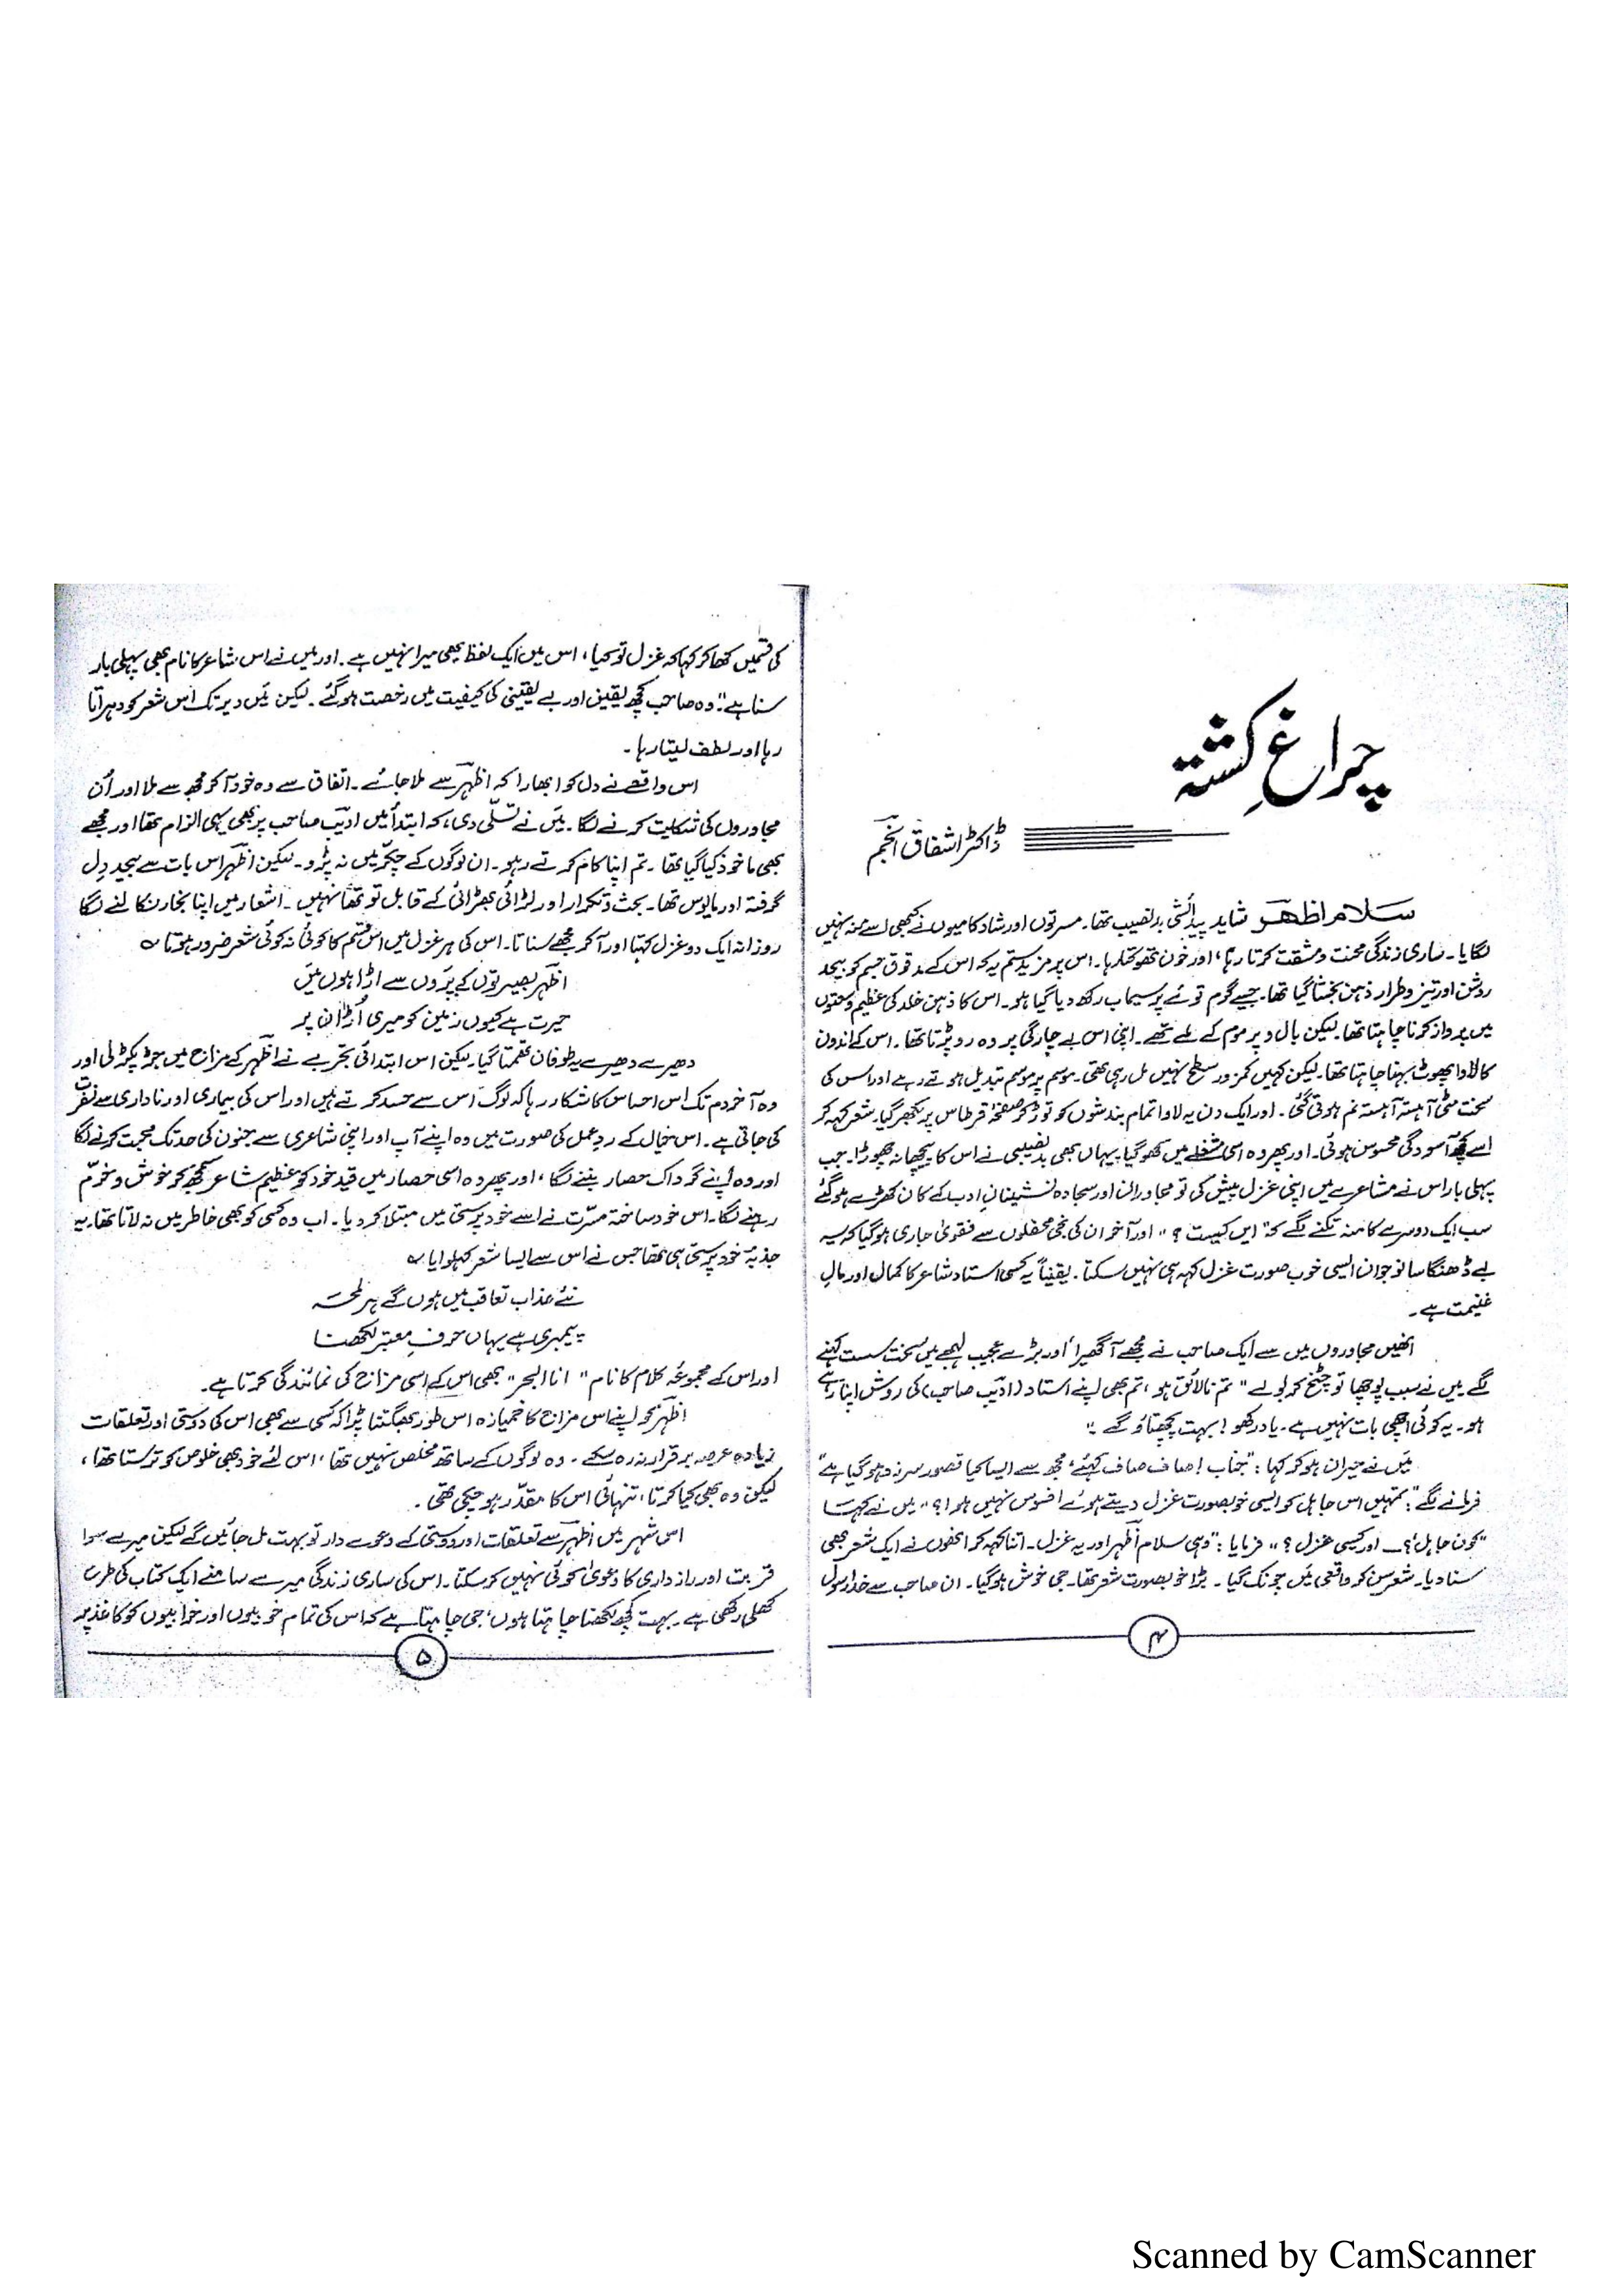 چراغِ کشتہ
ڈاکٹر اشفاق انجم
سلام اظہر شاید پیدائشی بدنصیب تھا۔ مسرتوں اور شادکامیوں نے کبھی اسے منہ نہیں
لگایا۔ ساری زندگی محنت و مشقت کرتا رہا، اور خون تھوکتا رہا۔ اس پر مزید ستم یہ کہ اس کے مدقوق جسم کو بیحد
روشن اور تیز و طرار ذہن بخشا گیا تھا۔ جیسے گرم توے پر سیماب رکھ دیا گیا ہو۔ اس کا ذہن خلد کی عظیم وسعتوں
میں پرواز کرنا چاہتا تھا۔ لیکن بال و پر موم کے ملے تھے۔ اپنی اس بے چارگی پر وہ رو پڑتا تھا۔ اس کے اندرون
کا لاوا پھوٹ بہنا چاہتا تھا۔ لیکن کہیں کمزور سطح نہیں مل رہی تھی۔ موسم پر موسم تبدیل ہوتے رہے اور اس کی
سخت مٹی آہستہ آہستہ نم ہوتی گئی۔ اور ایک دن یہ لاوا تمام بندشوں کو توڑ کر صفحۂ قرطاس پر بکھر گیا۔ شعر کہہ کر
اسے کچھ آسودگی محسوس ہوئی۔ اور پھر وہ اسی مشغلے میں کھو گیا یہاں بھی بدنصیبی نے اس کا پیچھا نہ چھوڑا۔ جب
پہلی بار اس نے مشاعرے میں اپنی غزل پیش کی تو مجاورانِ اور سجادہ نشینانِ ادب کے کان کھڑے ہو گئے
سب ایک دوسرے کا منہ تکنے لگے کہ "ایں کیست؟" اور آخر ان کی نجی محفلوں سے فتویٰ جاری ہو گیا کہ یہ
بے ڈھنگا سا نوجوان ایسی خوب صورت غزل کہہ ہی نہیں سکتا۔ یقیناً یہ کسی استاد شاعر کا کمال اور مالِ
غنیمت ہے۔
انھیں مجاوروں میں سے ایک صاحب نے مجھے آ گھیرا اور بڑے عجیب لہجے میں سخت سست کہنے
لگے میں نے سبب پوچھا تو چٹخ کر بولے "تم نالائق ہو، تم بھی اپنے استاد (ادیبؔ صاحب) کی روش اپنا رہے
ہو۔ یہ کوئی اچھی بات نہیں ہے۔ یاد رکھو! بہت پچھتاؤ گے۔"
میں نے حیران ہو کر کہا: "جناب! صاف صاف کہئے، مجھ سے ایسا کیا قصور سرزد ہو گیا ہے"
فرمانے لگے: "تمہیں اس جاہل کو ایسی خوبصورت غزل دیتے ہوئے افسوس نہیں ہوا؟" میں نے کہا
"کون جاہل؟ــ اور کیسی غزل؟" فرمایا: "وہی سلام اظہر اور یہ غزل۔ اتنا کہہ کر انھوں نے ایک شعر بھی
سنا دیا۔ شعر سن کر واقعی میں چونک گیا۔ بڑا خوبصورت شعر تھا۔ جی خوش ہو گیا۔ ان صاحب سے خدا رسول
۴
کی قسمیں کھا کر کہا کہ غزل تو کیا، اس میں ایک لفظ بھی میرا نہیں ہے۔ اور میں نے اس شاعر کا نام بھی پہلی بار
سنا ہے۔" وہ صاحب کچھ یقین اور بے یقینی کی کیفیت میں رخصت ہو گئے۔ لیکن میں دیر تک اس شعر کو دہراتا
رہا اور لطف لیتا رہا۔
اس واقعے نے دل کو ابھارا کہ اظہرؔ سے ملا جائے۔ اتفاق سے وہ خود آ کر مجھ سے ملا اور اُن
مجاوروں کی شکایت کرنے لگا۔ میں نے تسلّی دی، کہ ابتدأ میں ادیبؔ صاحب پر بھی یہی الزام تھا اور مجھے
بھی ماخوذ کیا گیا تھا۔ تم اپنا کام کرتے رہو۔ ان لوگوں کے چکر میں نہ پڑو۔ لیکن اظہرؔ اس بات سے بیحد دل
گرفتہ اور مایوس تھا۔ بحث و تکرار اور لڑائی بھڑائی کے قابل تو تھا نہیں۔ اشعار میں اپنا بخار نکالنے لگا
روزانہ ایک دو غزل کہتا اور آ کر مجھے سناتا۔ اس کی ہر غزل میں اس قسم کا کوئی نہ کوئی شعر ضرور ہوتا ؎
اظہرؔ بصیرتوں کے پَروں سے اڑا ہوں میں
حیرت ہے کیوں زمین کو میری اُڑان پر
دھیرے دھیرے یہ طوفان تھمتا گیا۔ لیکن اس ابتدائی تجربے نے اظہرؔ کے مزاج میں جڑ پکڑ لی اور
وہ آخر دم تک اس احساس کا شکار رہا کہ لوگ اس سے حسد کرتے ہیں اور اس کی بیماری اور ناداری سے نفرت
کی جاتی ہے۔ اس خیال کے ردِ عمل کی صورت میں وہ اپنے آپ اور اپنی شاعری سے جنون کی حد تک محبت کرنے لگا
اور وہ اپنے گرد اک حصار بننے لگا، اور پھر وہ اسی حصار میں قید خود کو عظیم شاعر سمجھ کر خوش و خرّم
رہنے لگا۔ اس خود ساختہ مسرّت نے اسے خود پرستی میں مبتلا کر دیا۔ اب وہ کسی کو بھی خاطر میں نہ لاتا تھا۔ یہ
جذبۂ خود پرستی ہی تھا جس نے اس سے ایسا شعر کہلوایا ؎
نئے عذاب تعاقب میں ہوں گے ہر لمحہ
پیمبری ہے یہاں حرفِ معتبر لکھنا
اور اس کے مجموعۂ کلام کا نام "انا البحر" بھی اس کے اسی مزاج کی نمائندگی کرتا ہے۔
اظہرؔ کو اپنے اس مزاج کا خمیازہ اس طور بھگتنا پڑا کہ کسی سے بھی اس کی دوستی اور تعلقات
زیادہ عرصہ برقرار نہ رہ سکے۔ وہ لوگوں کے ساتھ مخلص نہیں تھا، اس لئے خود بھی خلوص کو ترستا تھا،
لیکن وہ بھی کیا کرتا، تنہائی اس کا مقدّر ہو چکی تھی۔
اس شہر میں اظہرؔ سے تعلقات اور دوستی کے دعوے دار تو بہت مل جائیں گے لیکن میرے سوا
قربت اور رازداری کا دعویٰ کوئی نہیں کر سکتا۔ اس کی ساری زندگی میرے سامنے ایک کتاب کی طرح
کھلی رکھی ہے۔ بہت کچھ لکھنا چاہتا ہوں، جی چاہتا ہے کہ اس کی تمام خوبیوں اور خرابیوں کو کاغذ پر
۵
Scanned by CamScanner